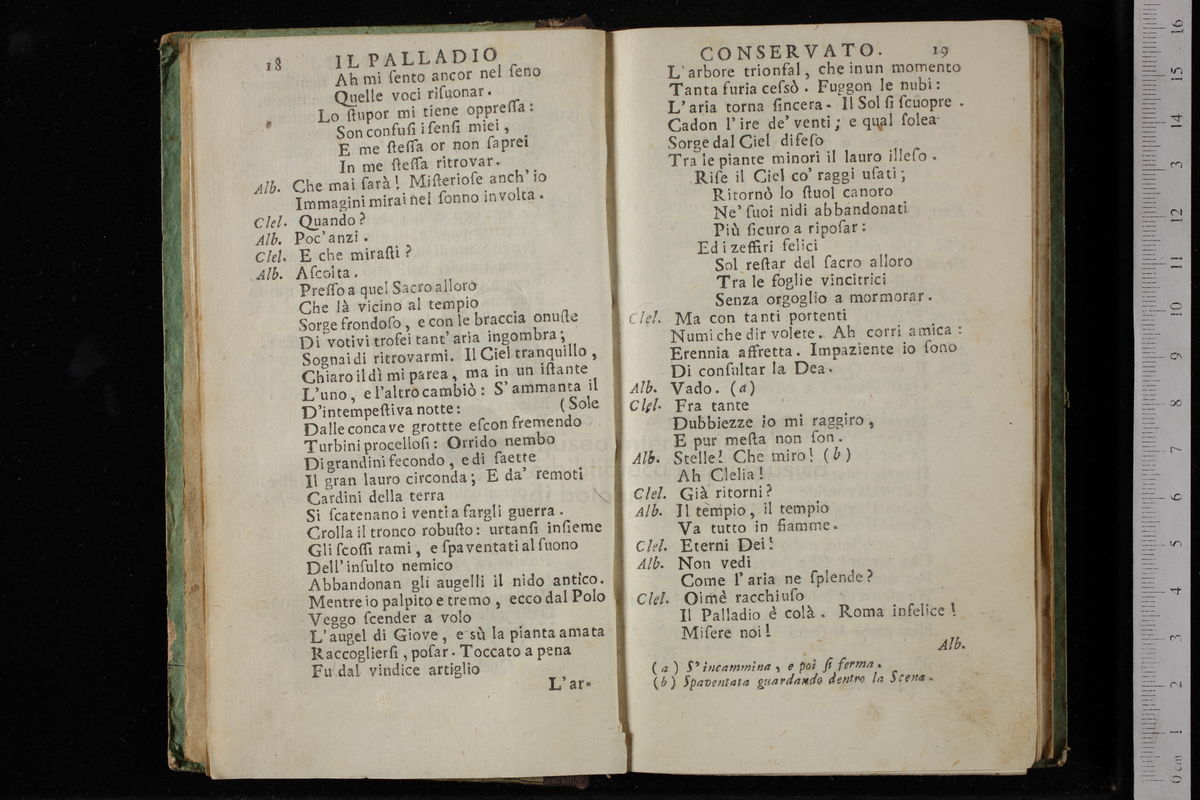 18 IL PALLADIO
Ah mi ſento ancor nel ſeno
Quelle voci riſuonar.
Lo ſtupor mi tiene oppreſſa:
Son confuſi i ſenſi miei,
E me ſteſſa or non ſaprei
In me ſteſſa ritrovar.
Alb. Che mai ſarà! Miſterioſe anch' io
Immagini mirai nel ſonno involta.
Clel. Quando?
Alb. Poc' anzi.
Clel. E che miraſti?
Alb. Aſcolta.
Preſſo a quel Sacro alloro
Che là vicino al tempio
Sorge frondoſo, e con le braccia onuſte
Di votivi trofei tant' aria ingombra;
Sognai di ritrovarmi. Il Ciel tranquillo,
Chiaro il dì mi parea, ma in un iſtante
L'uno, e l'altro cambiò: S'ammanta il
D'intempeſtiva notte: (Sole
Dalle concave grottte eſcon fremendo
Turbini procelloſi: Orrido nembo
Di grandini fecondo, e di ſaette
Il gran lauro circonda; E da' remoti
Cardini della terra
Si ſcatenano i venti a fargli guerra.
Crolla il tronco robuſto: urtanſi inſieme
Gli ſcoſſi rami, e ſpaventati al ſuono
Dell' inſulto nemico
Abbandonan gli augelli il nido antico.
Mentre io palpito e tremo, ecco dal Polo
Veggo ſcender a volo
L'augel di Giove, e sù la pianta amata
Raccoglierſi, poſar. Toccato a pena
Fu dal vindice artiglio
L'ar-
CONSERVATO. 19
L'arbore trionfal, che in un momento
Tanta furia ceſsò. Fuggon le nubi:
L'aria torna ſincera. Il Sol ſi ſcuopre.
Cadon l'ire de' venti; e qual ſolea
Sorge dal Ciel difeſo
Tra le piante minori il lauro illeſo.
Riſe il Ciel co' raggi uſati;
Ritornò lo ſtuol canoro
Ne' ſuoi nidi abbandonati
Più ſicuro a ripoſar:
Ed i zeffiri felici
Sol reſtar del ſacro alloro
Tra le foglie vincitrici
Senza orgoglio a mormorar.
Clel. Ma con tanti portenti
Numi che dir volete. Ah corri amica:
Erennia affretta. Impaziente io ſono
Di conſultar la Dea.
Alb. Vado. (a)
Clel. Fra tante
Dubbiezze io mi raggiro,
E pur meſta non ſon.
Alb. Stelle! Che miro! (b)
Ah Clelia!
Clel. Già ritorni?
Alb. Il tempio, il tempio
Va tutto in fiamme.
Clel. Eterni Dei!
Alb. Non vedi
Come l'aria ne ſplende?
Clel. Oimè racchiuſo
Il Palladio è colà. Roma infelice!
Miſere noi!
Alb.
(a) S'incammina, e poi ſi ferma.
(b) Spaventata guardando dentro la Scena.